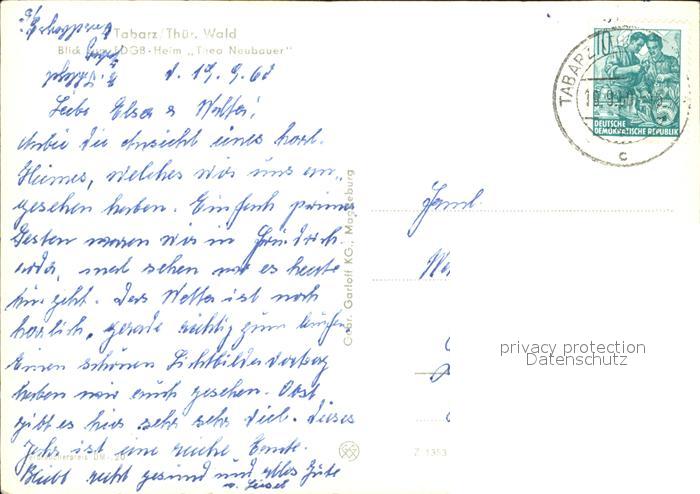 Tabarz/Thür. Wald
Blick zum FDGB-Heim „Theo Neubauer"
d. 17.9.60
Liebe Elsa & Walter!
Anbei die Ansicht eines
Heimes, welches wir uns an-
gesehen haben. Einfach prima
Gestern waren wir in Friedrich-
roda, mal sehen wo es heute
hin geht. Das Wetter ist noch
herrlich, gerade richtig zum laufen
Einen schönen Lichtbildervortrag
haben wir auch gesehen. Obst
gibt es hier sehr sehr viel. Dieses
Jahr ist eine reiche Ernte.
Bleibt recht gesund und alles Gute
Verbraucherpreis DM -,20
Gebr. Garloff KG., Magdeburg
Z 1353
TABARZ
c
10
5
DEUTSCHE
DEMOKRATISCHE REPUBLIK
Fam.
privacy protection
Datenschutz